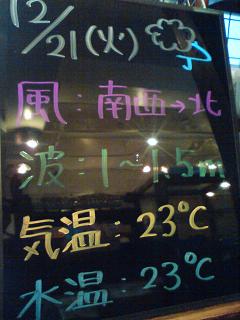 12/21(火)
風:南西→北
波:1~1.5m
気温:23℃
水温:23℃